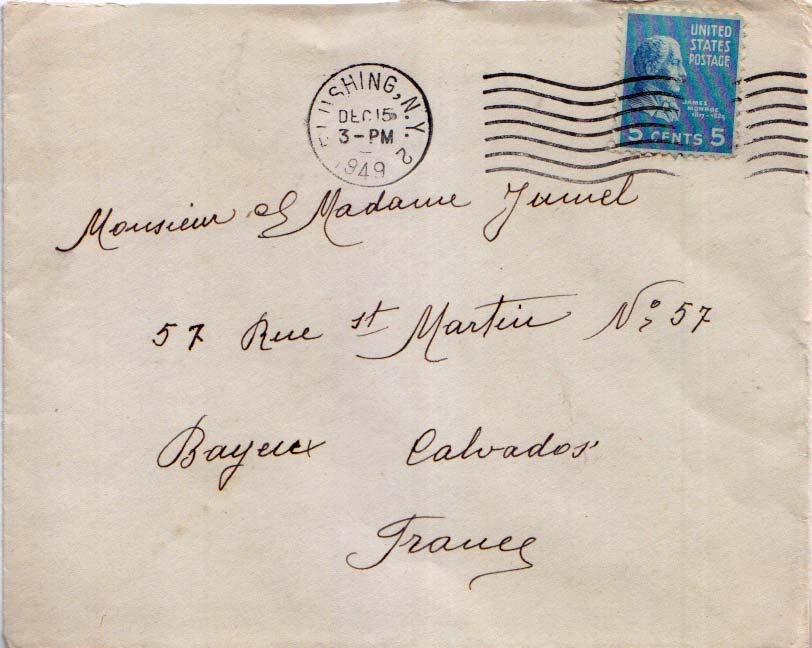 UNITED
STATES
POSTAGE
JAMES
MONROE
1817-1825
5 CENTS 5
FLUSHING, N.Y. 2
DEC 15
3-PM
1949
Monsieur et Madame Jumel
57 Rue st Martin No 57
Bayeux Calvados
France